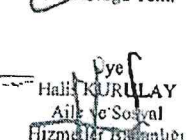 Üye
Halis KURULAY
Aile ve Sosyal
Hizmetler